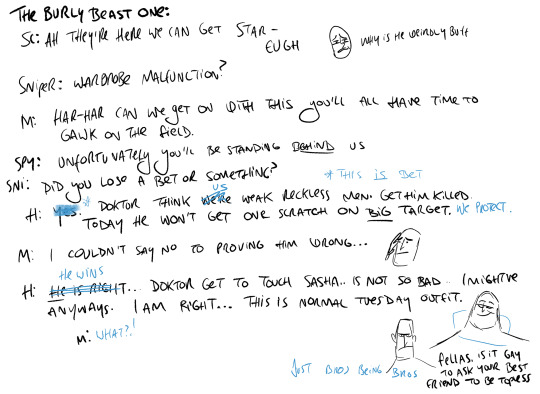 THE BURLY BEAST ONE:
SC: AH THEY'RE HERE WE CAN GET STAR-
EUGH
WHY IS HE WEIRDLY BUFF
SNIPER: WARDROBE MALFUNCTION?
M: HAR-HAR CAN WE GET ON WITH THIS YOU'LL ALL HAVE TIME TO
GAWK ON THE FIELD.
SPY: UNFORTUNATELY YOU'LL BE STANDING BEHIND US
SNI: DID YOU LOSE A BET OR SOMETHING?
* THIS IS BET
H: YES. * DOKTOR THINK WE'RE US WEAK RECKLESS MEN. GET HIM KILLED.
TODAY HE WON'T GET ONE SCRATCH ON BIG TARGET. WE PROTECT.
M: I COULDN'T SAY NO TO PROVING HIM WRONG...
HE WINS
H: HE IS RIGHT... DOKTOR GET TO TOUCH SASHA.. IS NOT SO BAD.. I MIGHT'VE
ANYWAYS. I AM RIGHT... THIS IS NORMAL TUESDAY OUTFIT.
M: WHAT?!
JUST BROS BEING BROS
FELLAS, IS IT GAY
TO ASK YOUR BEST
FRIEND TO BE TOPLESS